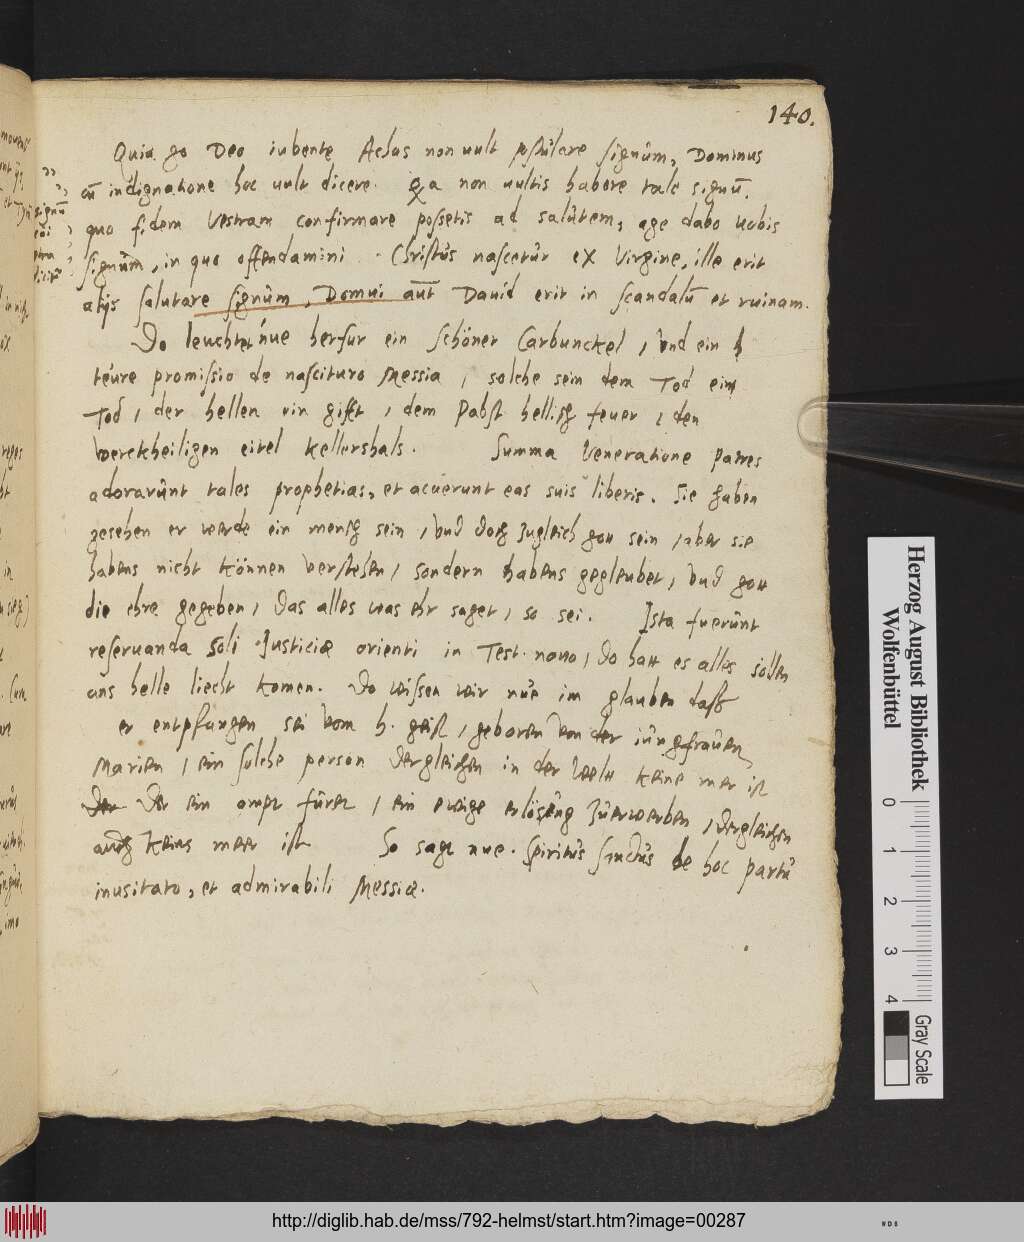 140.
Quia go Deo iubente Achas non uult postulare signum, Dominus
cū indignatione hoc uult dicere. qa non uultis habere tale signū,
quo fidem vestram confirmare possetis ad salutem, age dabo uobis
signum, in quo offendamini. Christus nascetur ex virgine, ille erit
alijs salutare signum, Domui aut David erit in scandalū et ruinam.
Do leuchtet nue herfur ein schöner Carbunckel, vnd ein
teure promissio de nascituro Messia, solche sein dem Tod ein
Tod, der hellen ein gifft, dem Pabst hellisch feuer, den
werckheiligen eitel kellershals. Summa veneratione patres
adorarunt tales prophetias, et acuerunt eas suis liberis. Sie haben
gesehen er werde ein mensch sein, vnd doch zugleich gott sein, aber sie
habens nicht können verstehen, sondern habens gegleubet, vnd gott
die ehre gegeben, das alles was ehr saget, so sei. Ista fuerunt
reseruanda Soli Justiciæ orienti in Test. nouo, do hatt es alles sollen
ans helle liecht komen. Do wissen wir nue im glauben dass
er entpfangen sei vom h. geist, geboren von der iungfrauen
Marien, ein solche person dergleichen in der welt keine mer ist
Der ein opfer füret, ein ewige erlösung zuerwerben, dergleichen
auch keins meer ist So sagt nue Spiritus Sanctus de hoc partu
inusitato, et admirabili Messiæ.
Herzog August Bibliothek
Wolfenbüttel
0 1 2 3 4
Gray Scale
http://diglib.hab.de/mss/792-helmst/start.htm?image=00287